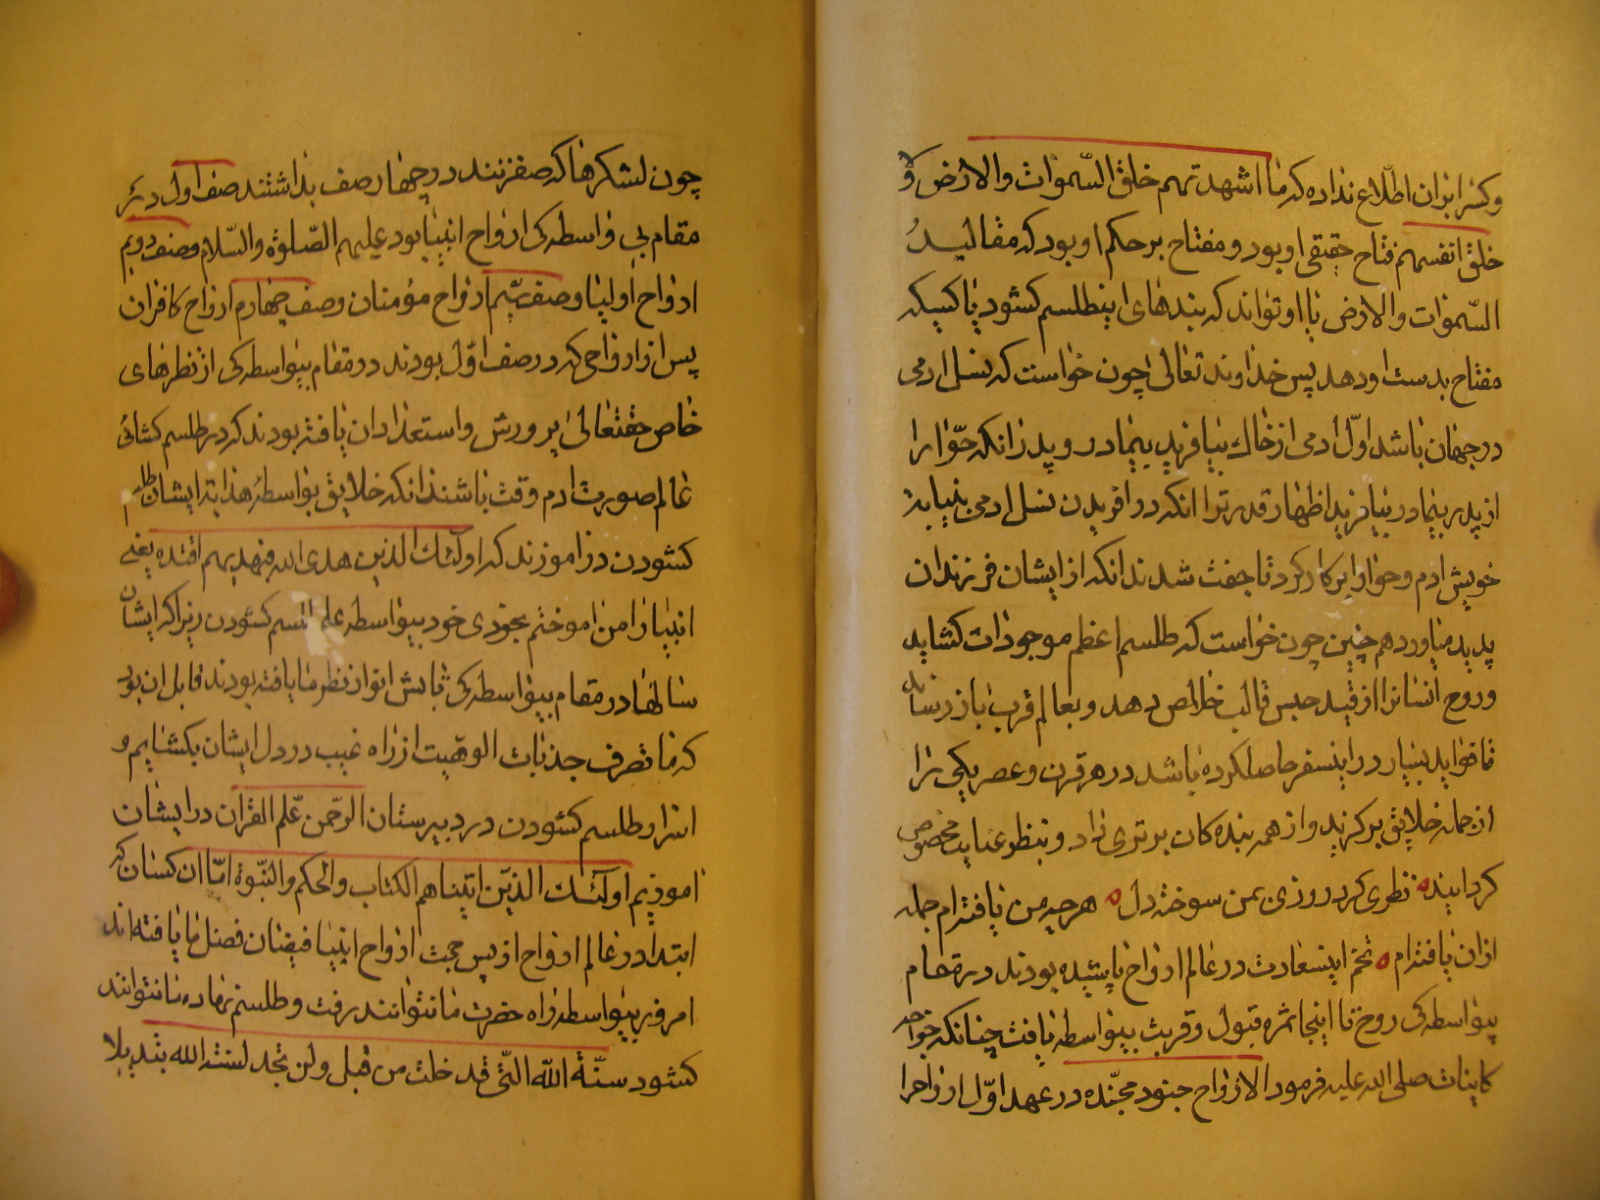 وکس را بران اطلاع نداده که ما اشهدتهم خلق السموات والارض و
خلق انفسهم فتاح حقیقی او بود و مفتاح بر حکم او بود که مقالید
السموات والارض تا او تواند که بندهای این طلسم کشود یا کسیکه
مفتاح بدست او دهد پس خداوند تعالی چون خواست که نسل ادمی
در جهان باشد اول ادمی از خاک بیافرید بیمادر و پدر زانکه حوا را
از پدر بیمادر بیافرید اظهار قدرت را انکه در افریدن نسل ادمی بنیابة
خویش ادم و حوا را برکار کرد تا جفت شدند انکه از ایشان فرزندان
پدید میاورد همچنین چون خواست که طلسم اعظم موجودات کشاید
و روح انسانرا از قید حبس قالب خلاص دهد و بعالم قرب باز رساند
تا فواید بسیار در اینسفر حاصلکرده باشد در هر قرن و عصر یکی را
از جمله خلایق برکزید و از همه بنده کان برتری داد و بنظر عنایت مخصوص
کردانید نظری کرد روزی بمن سوخته دل هر چه من یافته‌ام جمله
ازان یافته‌ام تخم اینسعادت در عالم ارواح پاشیده بودند در مقام
بیواسطه کی روح تا اینجا ثمره قبول و قربت بیواسطه یافت چنانکه خواجه
کاینات صلی الله علیه فرمود الارواح جنود مجنده در عهد اول ارواح را
چون لشکرها که صف زنند در چهار صف بداشتند صف اول در
مقام بی واسطه کی ارواح انبیا بود علیهم الصلوة والسلام وصف دویم
ارواح اولیا وصف سیم ارواح مؤمنان وصف چهارم ارواح کافران
پس از ارواحی که در صف اول بودند در مقام بیواسطه کی از نظرهای
خاص حقتعالی پرورش و استعداد ان یافته بودند که در طلسم کشائی
عالم صورت ادم وقت باشند انکه خلایق بواسطه هدایت ایشان طلسم
کشودن در اموزند که اولئک الذین هدی الله فبهدیهم اقتده یعنی
انبیا را من اموختم بخودی خود بیواسطه علم طلسم کشودن زیرا که ایشان
سالها در مقام بیواسطه کی تابش انوار نظر ما یافته بودند قابل ان بود
که ما تصرف جذبات الوهیت از راه غیب در دل ایشان بکشایم و
اسرار طلسم کشودن در دبیرستان الرحمن علم القران در ایشان
اموزیم اولئک الذین اتیناهم الکتاب والحکم والنبوة اما ان کسان که
ابتدا در عالم ارواح از پس حجب ارواح انبیا فیضان فضل ما یافته اند
امروز بیواسطه راه حضرت ما نتوانند رفت و طلسم نهاده ما نتوانند
کشود سنة الله التی قد خلت من قبل ولن تجد لسنة الله تبدیلا